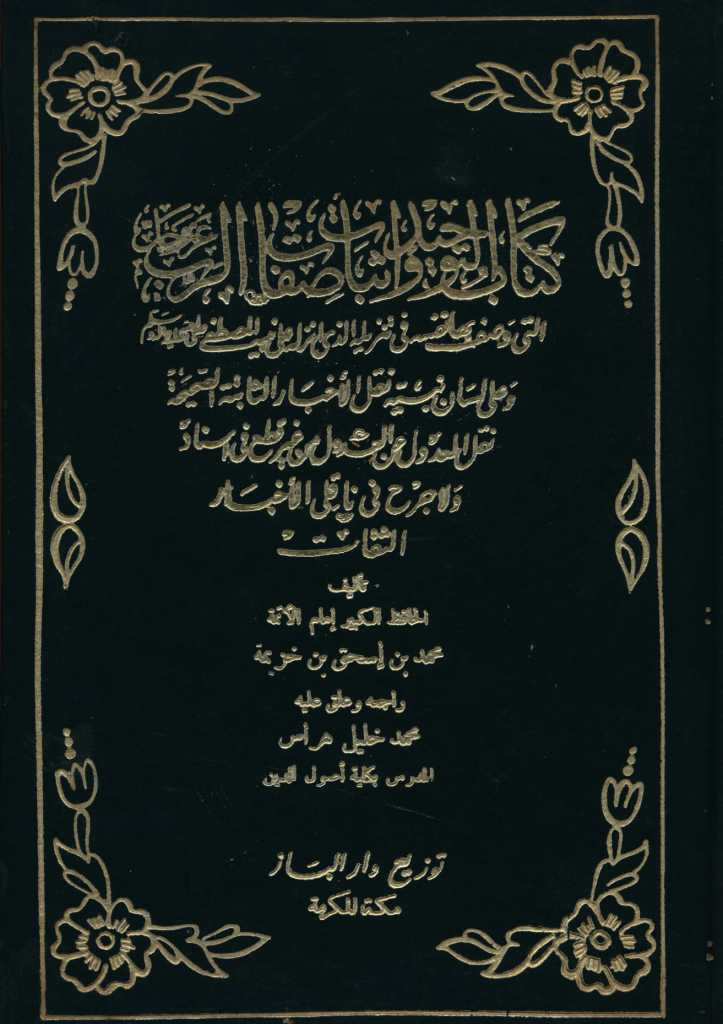 كتاب التوحيد وإثبات صفات الرب عز وجل
التي وصف بها نفسه في تنزيله الذي أنزله على نبيه المصطفى صلى الله عليه وسلم
وعلى لسان نبيه نقل الأخبار الثابتة الصحيحة
نقل العدول عن العدول من غير قطع في إسناد
ولا جرح في ناقلي الأخبار
الثقات
تأليف
الحافظ الكبير إمام الأئمة
محمد بن إسحق بن خزيمة
راجعه وعلق عليه
محمد خليل هراس
المدرس بكلية أصول الدين
توزيع دار الباز
مكة المكرمة